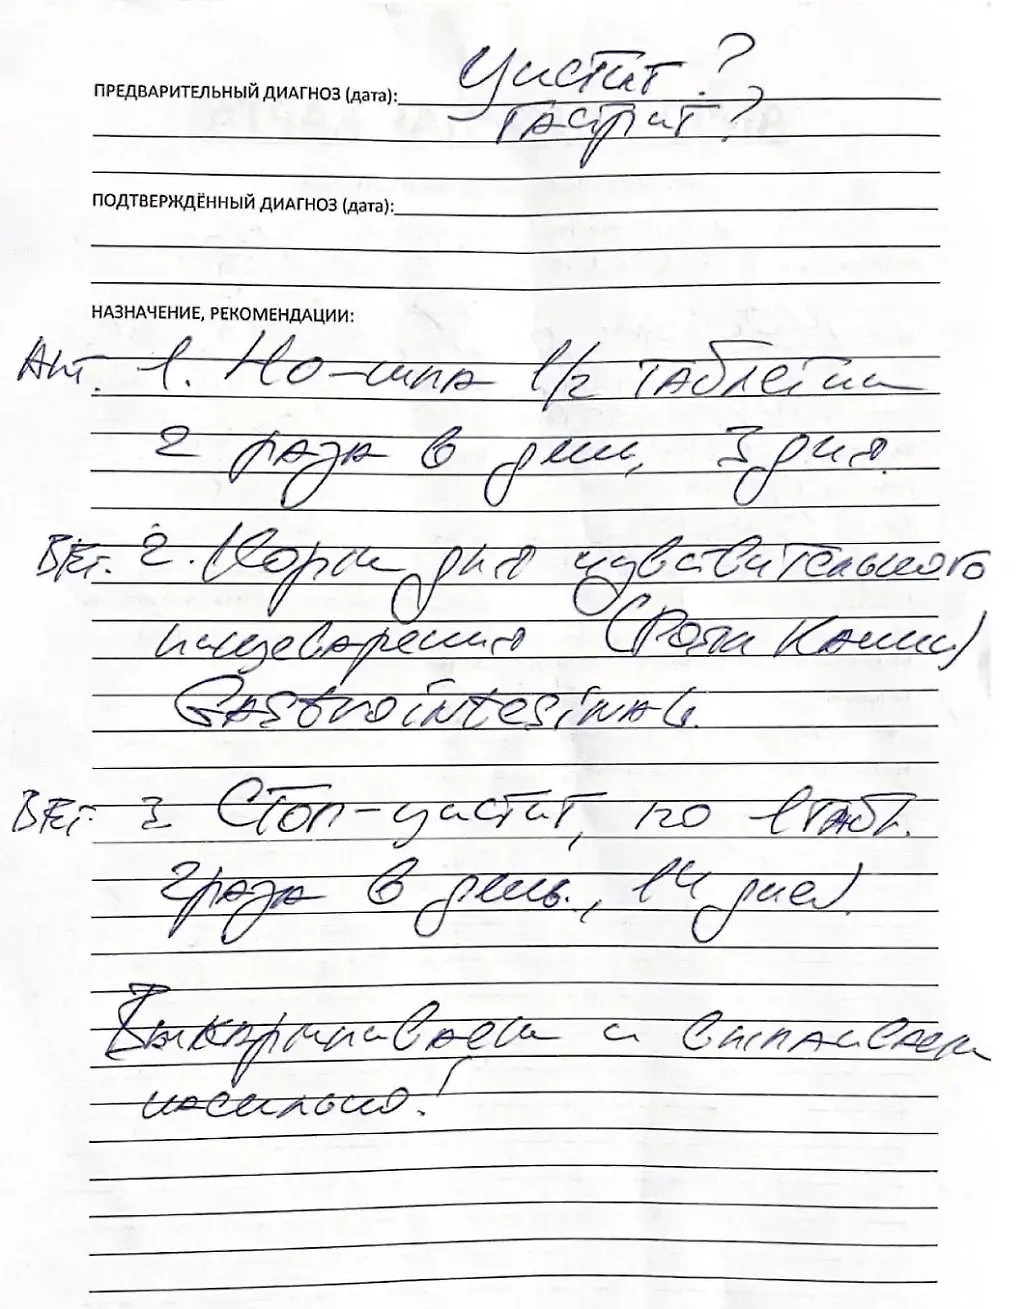 ПРЕДВАРИТЕЛЬНЫЙ ДИАГНОЗ (дата): Цистит?
Гастрит?
ПОДТВЕРЖДЁННЫЙ ДИАГНОЗ (дата):
НАЗНАЧЕНИЕ, РЕКОМЕНДАЦИИ:
Апт. 1. Но-шпа 1/2 таблетки
2 раза в день, 3 дня.
Вет. 2. Корм для чувствительного
пищеварения (Роял Канин)
Gastrointestinal.
Вет. 3 Стоп-цистит, по 1 табл.
2 раза в день, 14 дней.
Выкармливаем и выпаиваем
насильно!